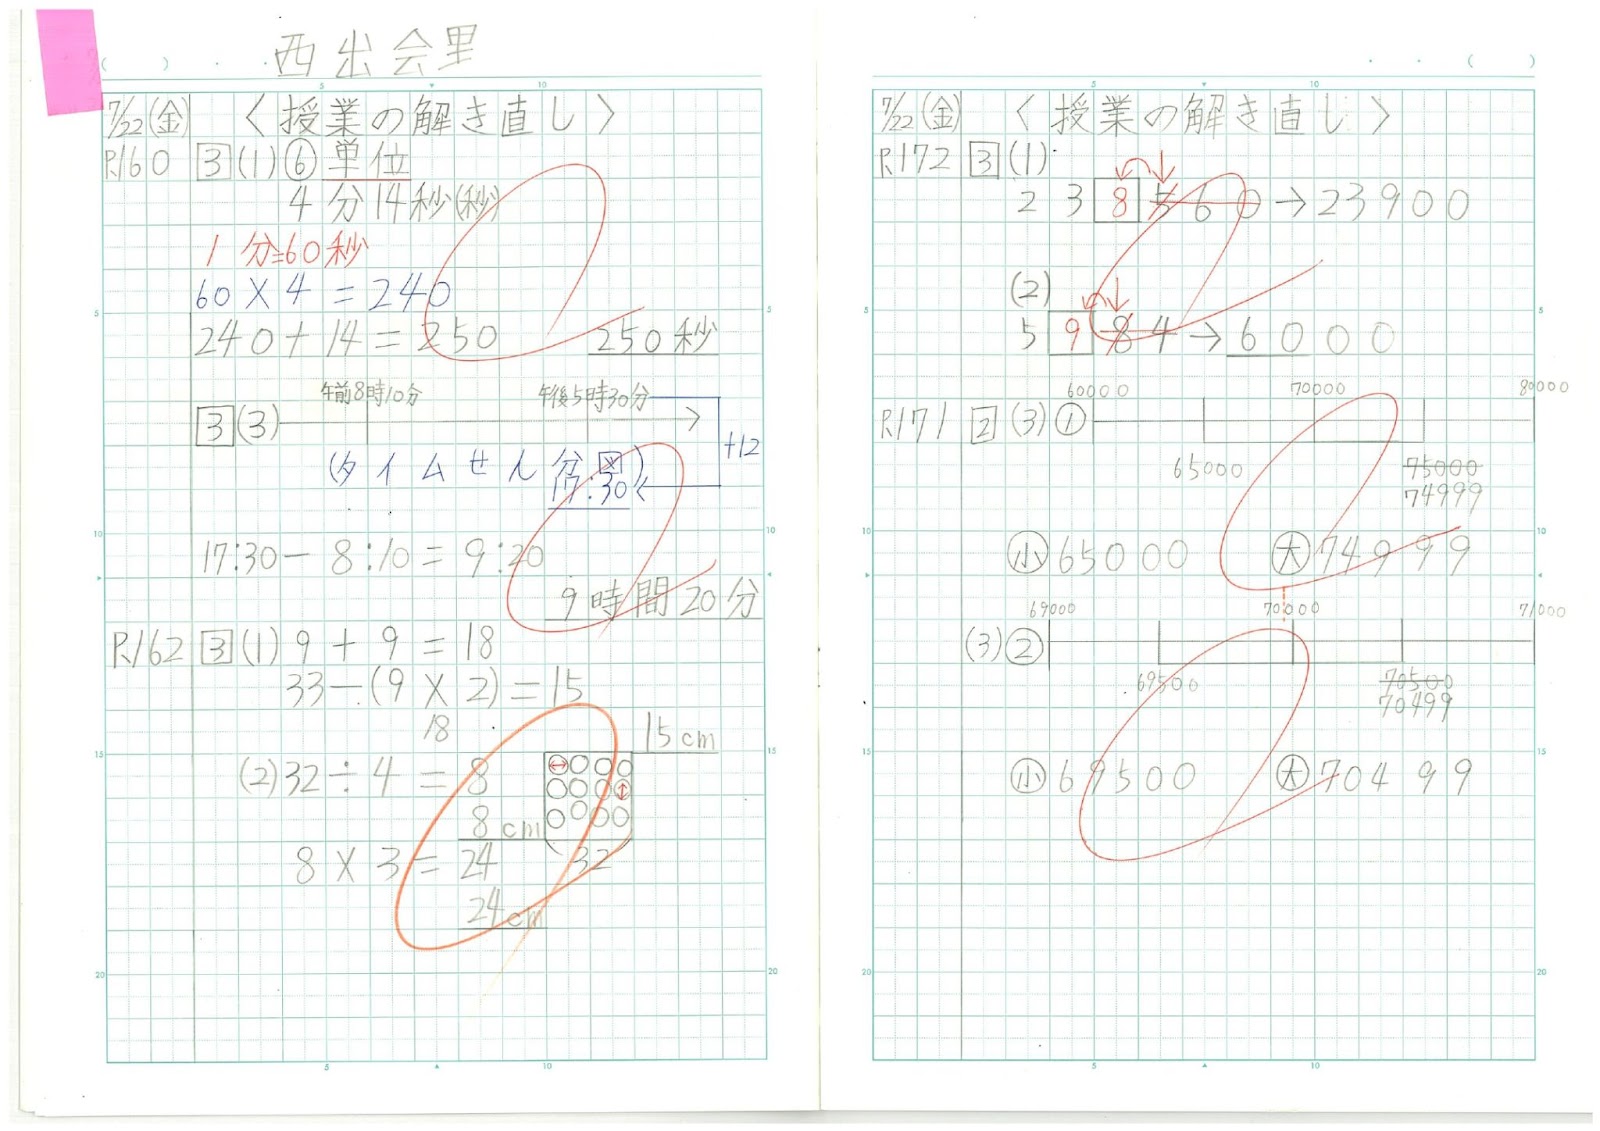 西出会里
7/22(金) 〈授業の解き直し〉
P.160 3 (1) ⑥ 単位
4分14秒(秒)
1分=60秒
60×4=240
240+14=250 250秒
午前8時10分 午後5時30分
3 (3)
+12
(タイムせん分図)
17:30
17:30-8:10=9:20
9時間20分
P.162 3 (1) 9+9=18
33-(9×2)=15
18
15cm
(2) 32÷4=8
8cm
8×3=24 32
24cm
7/22(金) 〈授業の解き直し〉
P.172 3 (1)
238560→23900
(2)
5984→60000
60000 70000 80000
P.171 2 (3) ①
65000 75000
74999
小 65000 大 74999
69000 70000 71000
(3) ②
69500 70500
70499
小 69500 大 70499